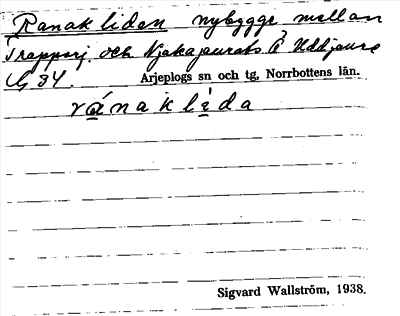 Ranakliden nybygge mellan
Trappasj. och Njakajaurats Å Uddjaure
G 34. Arjeplogs sn och tg, Norrbottens län.
ránaklìda
Sigvard Wallström, 1938.